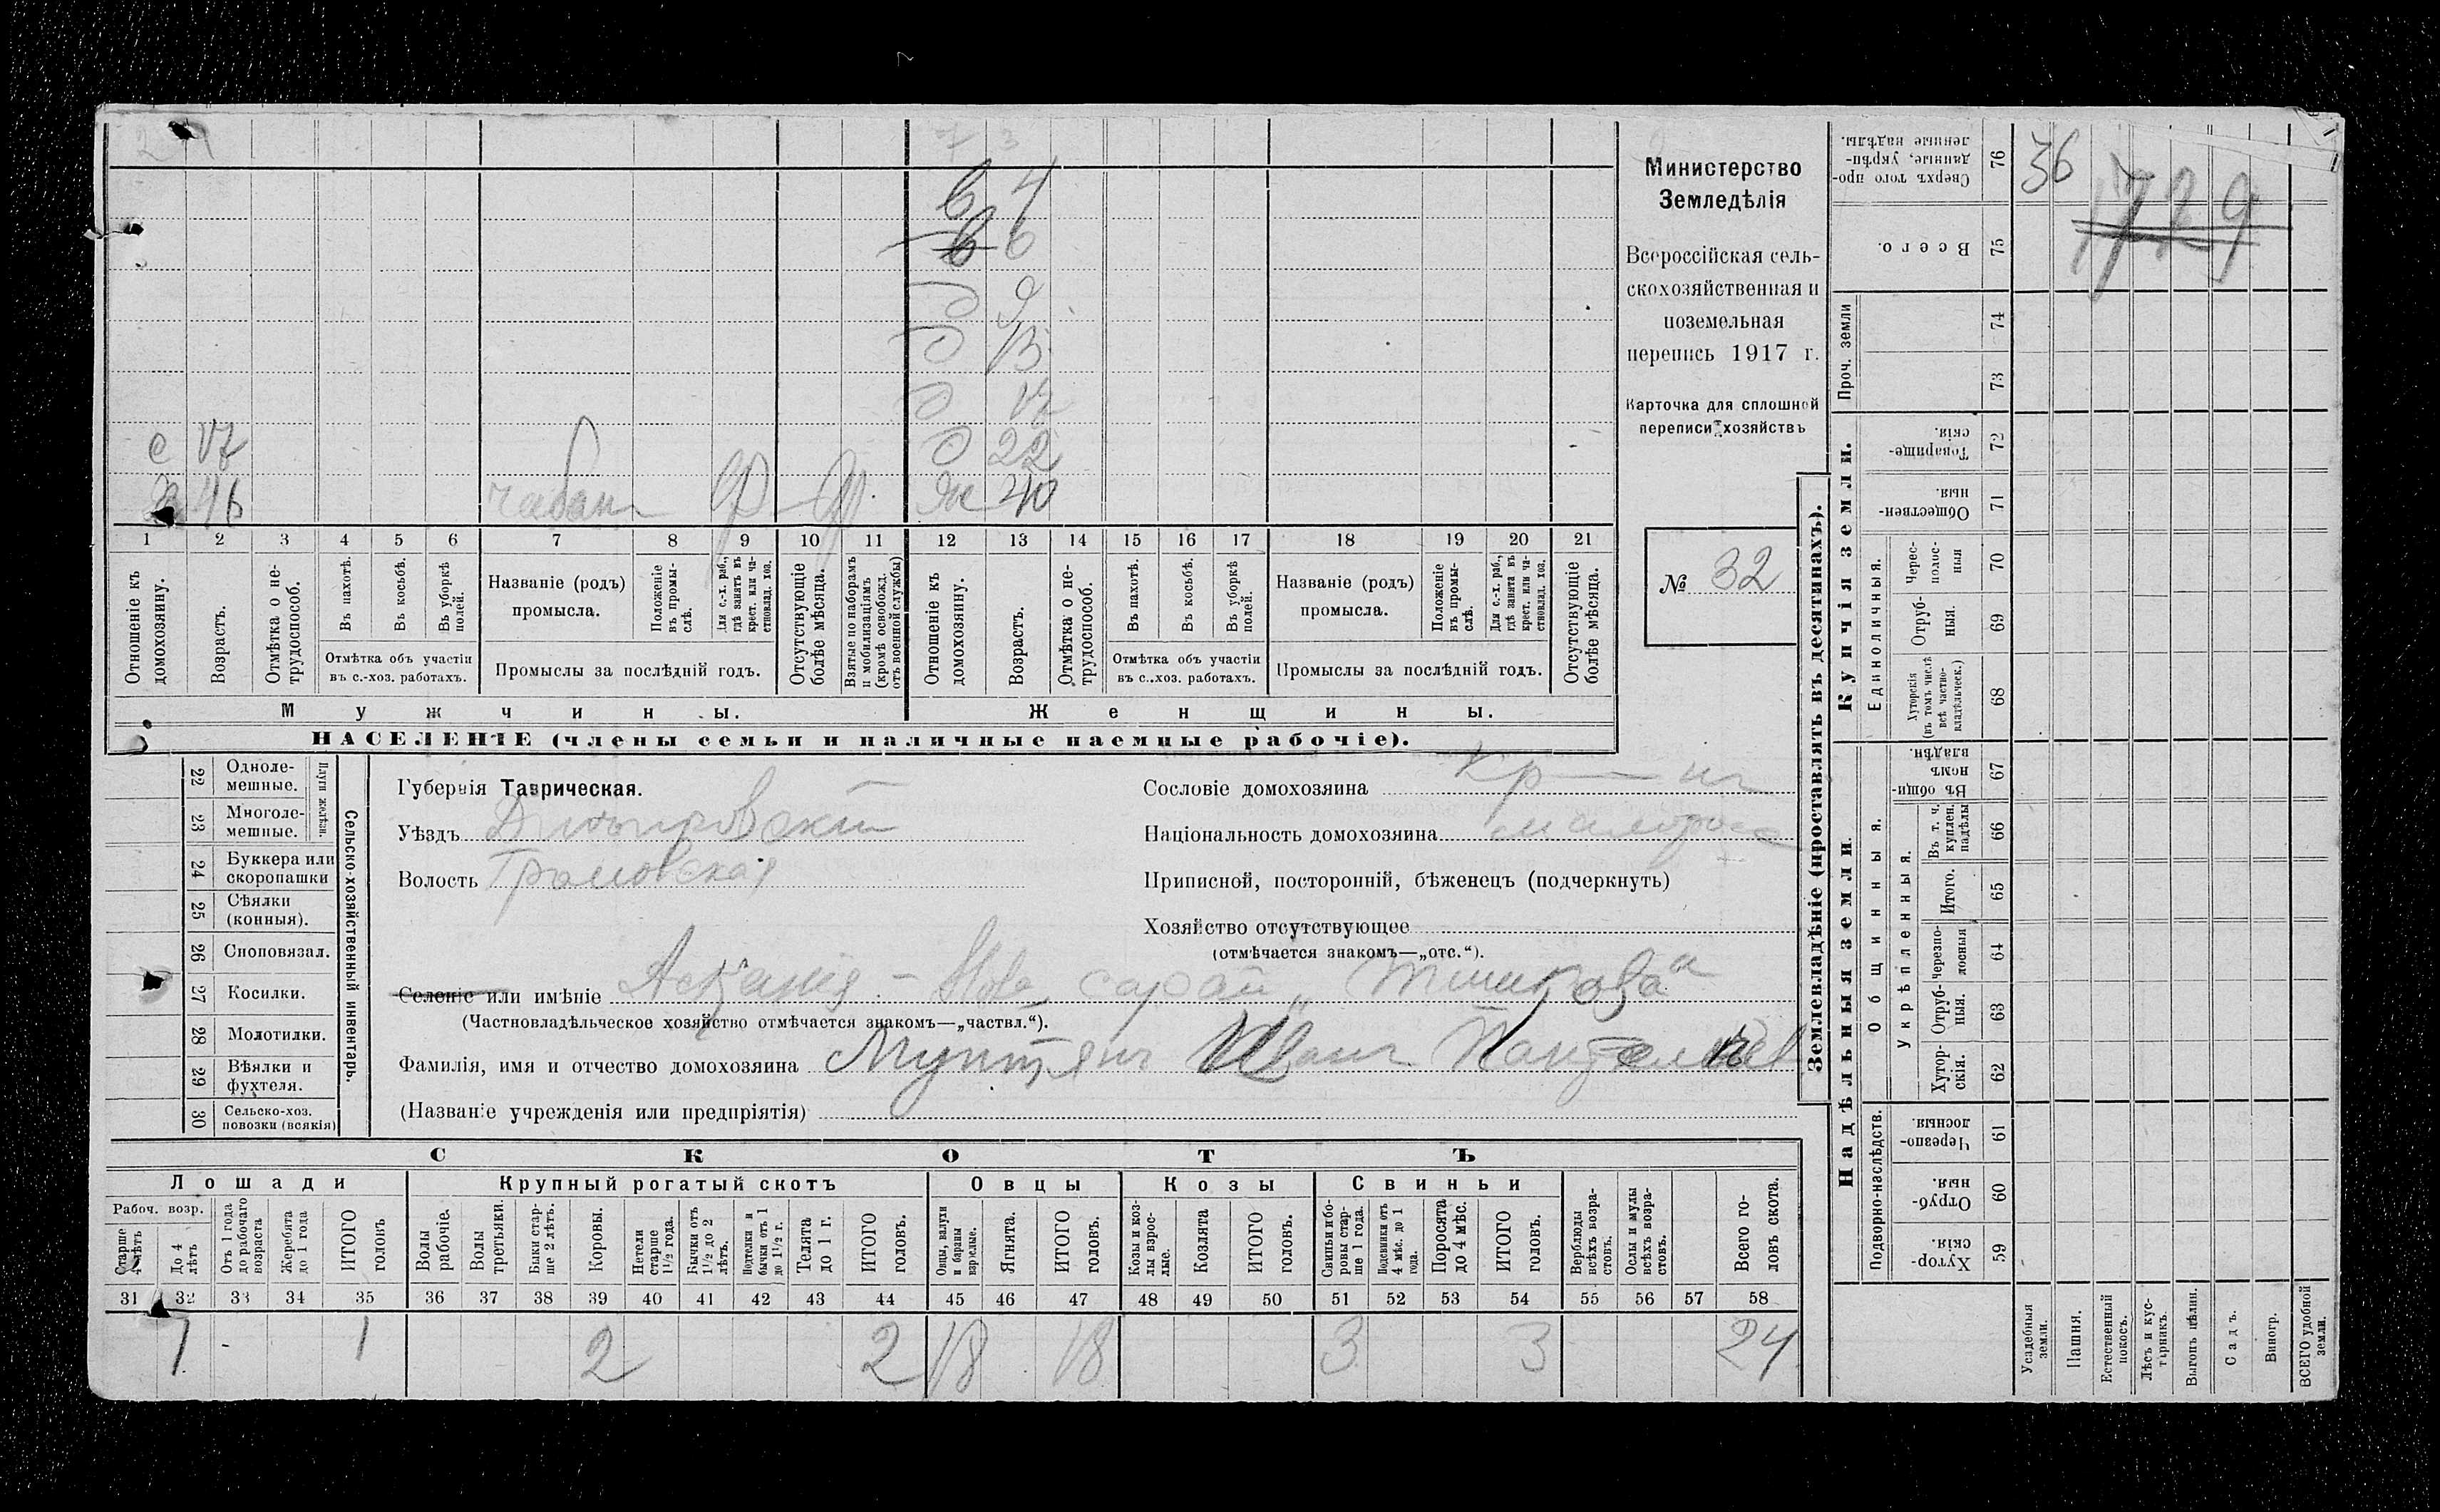 2
7 3
в 4
в 6
д 9
д 13
д 17
с 17 д 22
х 46 чабан ж 40
1 2 3 4 5 6 7 8 9 10 11 12 13 14 15 16 17 18 19 20 21
Отношеніе къ домохозяину.
Возрастъ.
Отмѣтка о не-
трудоспособ.
Въ пахотѣ.
Въ косьбѣ.
Въ уборкѣ
полей.
Отмѣтка объ участіи
въ с.-хоз. работахъ.
Названіе (родъ)
промысла.
Положеніе
въ промы-
слѣ.
Для с.-х. раб.,
гдѣ занятъ въ
крест. или ча-
стновлад. хоз.
Промыслы за послѣдній годъ.
Отсутствующіе
болѣе мѣсяца.
Взятые по наборамъ
и мобилизаціямъ
(кромѣ освобожд.
отъ военной службы)
Отношеніе къ
домохозяину.
Возрастъ.
Отмѣтка о не-
трудоспособ.
Въ пахотѣ.
Въ косьбѣ.
Въ уборкѣ
полей.
Отмѣтка объ участіи
въ с.-хоз. работахъ.
Названіе (родъ)
промысла.
Положеніе
въ промы-
слѣ.
Для с.-х. раб.,
гдѣ занята въ
крест. или ча-
стновлад. хоз.
Промыслы за послѣдній годъ.
Отсутствующіе
болѣе мѣсяца.
Мужчины.
Женщины.
НАСЕЛЕНІЕ (члены семьи и наличные наемные рабочіе).
Министерство
Земледѣлія
Всероссійская сель-
скохозяйственная и
поземельная
перепись 1917 г.
Карточка для сплошной
переписи хозяйствъ
№ 32
22 Одноле-
мешные.
23 Многоле-
мешные.
Плуги желѣзн.
24 Буккера или
скоропашки
25 Сѣялки
(конныя).
26 Сноповязал.
27 Косилки.
28 Молотилки.
29 Вѣялки и
фухтеля.
30 Сельско-хоз.
повозки (всякія)
Сельско-хозяйственный инвентарь.
Губернія Таврическая.
Уѣздъ Днѣпровскій
Волость Громовская
Селеніе или имѣніе Асканія-Нова, сарай „Тишкова“
(Частновладѣльческое хозяйство отмѣчается знакомъ—„частвл.“).
Фамилія, имя и отчество домохозяина Мунтянъ Иванъ
(Названіе учрежденія или предпріятія)
Сословіе домохозяина кр-нъ
Національность домохозяина малоросс
Приписной, посторонній, бѣженецъ (подчеркнуть)
Хозяйство отсутствующее
(отмѣчается знакомъ—„отс.“).
СКОТЪ
Лошади
Рабоч. возр.
Старше
4 лѣтъ
До 4
лѣтъ
Отъ 1 года
до рабочаго
возраста
Жеребята
до 1 года
ИТОГО
головъ
Крупный рогатый скотъ
Волы
рабочіе.
Волы
третьяки.
Быки стар-
ше 2 лѣтъ.
Коровы.
Нетели
старше
1½ года.
Бычки отъ
1½ до 2
лѣтъ.
Подтелки и
бычки отъ 1
до 1½ г.
Телята
до 1 г.
ИТОГО
головъ.
Овцы
Овцы, валухи
и бараны
взрослые.
Ягнята.
ИТОГО
головъ.
Козы
Козы и коз-
лы взрос-
лые.
Козлята
ИТОГО
головъ.
Свиньи
Свиньи и бо-
ровы стар-
ше 1 года.
Подсвинки отъ
4 мѣс. до 1
года.
Поросята
до 4 мѣс.
ИТОГО
головъ.
Верблюды
всѣхъ возра-
стовъ.
Ослы и мулы
всѣхъ возра-
стовъ.
Всего го-
ловъ скота.
31 32 33 34 35 36 37 38 39 40 41 42 43 44 45 46 47 48 49 50 51 52 53 54 55 56 57 58
1 - 1 2 2 18 18 3 3 24
Землевладѣніе (проставлять въ десятинахъ).
Купчія земли.
Надѣльныя земли.
Сверхъ того про-
данные, укрѣп-
ленные надѣлы.
76
36
1729
Всего.
75
Проч. земли
74
73
Товарище-
скія.
72
Обществен-
ныя.
71
Единоличныя.
Черес-
полос-
ныя
70
Отруб-
ныя.
69
Хуторскія
(въ томъ числѣ
всѣ частно-
владѣльческ.)
68
Общинныя.
Въ общи-
номъ
владѣн.
67
Укрѣпленныя.
Въ т. ч.
куплен.
надѣлы
66
Итого.
65
Черезпо-
лосныя
64
Отруб-
ныя.
63
Хутор-
скія.
62
Подворно-наслѣдств.
Черезпо-
лосныя.
61
Отруб-
ныя.
60
Хутор-
скія.
59
Усадебныя
земли.
Пашня.
Естественный
покосъ.
Лѣсъ и кус-
тарникъ.
Выгонъ цѣлин.
Садъ.
Виногр.
ВСЕГО удобной
земли.